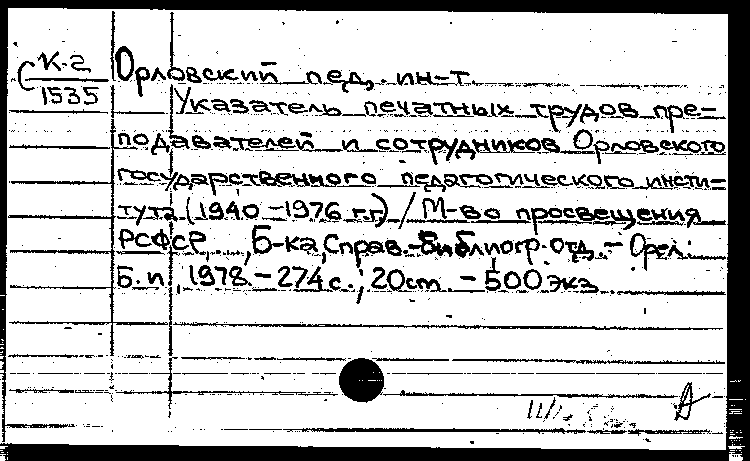 С К-2
1535
Орловский пед. ин-т.
Указатель печатных трудов пре-
подавателей и сотрудников Орловского
государственного педагогического инсти-
тута (1940-1976 гг.) / М-во просвещения
РСФСР, Б-ка, Справ.-библиогр. отд. - Орел:
Б.и, 1978. - 274 с.; 20 см. - 500 экз
А